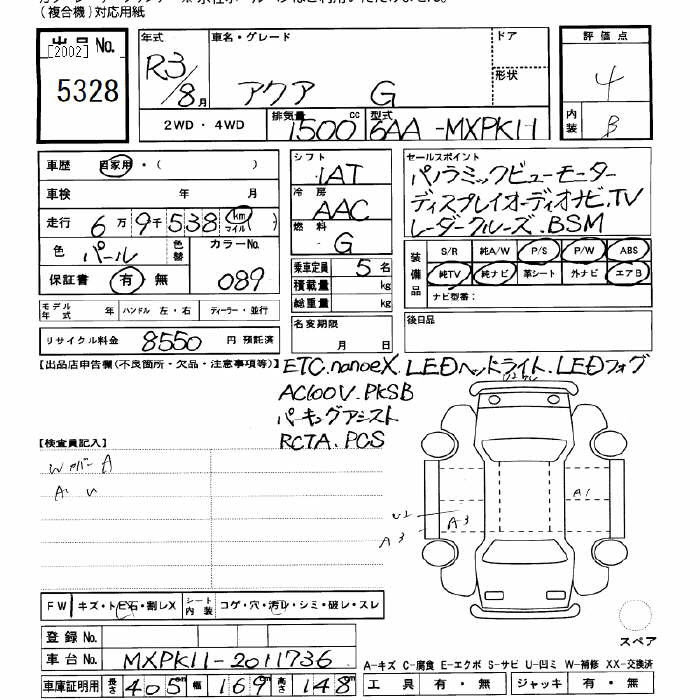 (複合機)対応用紙
出品 No.
[2002]
5328
年式 R3/8月
車名・グレード アクア G
ドア
形状
評価点 4
内装 B
2WD・4WD
排気量 1500 cc
型式 6AA-MXPK11
車歴 自家用・( )
シフト IAT
セールスポイント
パノラミックビューモニター
ディスプレイオーディオナビ、TV
レーダークルーズ、BSM
車検 年 月
冷房 AAC
走行 6万9千538 (km マイル)
燃料 G
色 パール 色替
カラーNo. 089
乗車定員 5名
装備品 S/R 純A/W P/S P/W ABS
純TV 純ナビ 革シート 外ナビ エアB
ナビ型番:
保証書 有・無
積載量 kg
総重量 kg
モデル年式 年 ハンドル 左・右 ディーラー・並行
名変期限 月 日
後日品
リサイクル料金 8550 円 預託済
【出品店申告欄(不良箇所・欠品・注意事項等)】
ETC.nanoeX.LEDヘッドライト.LEDフォグ
AC100V.PKSB
パーキングアシスト
RCTA.PCS
【検査員記入】
A1
A3
A3
FW キズ・トビ石・割レX
シート内装 コゲ・穴・汚レ・シミ・破レ・スレ
登録 No.
スペア
車台 No. MXPK11-2011736
A-キズ C-腐食 E-エクボ S-サビ U-凹ミ W-補修 XX-交換済
車庫証明用 長さ 405cm 幅 169cm 高さ 148cm
工具 有・無 ジャッキ 有・無